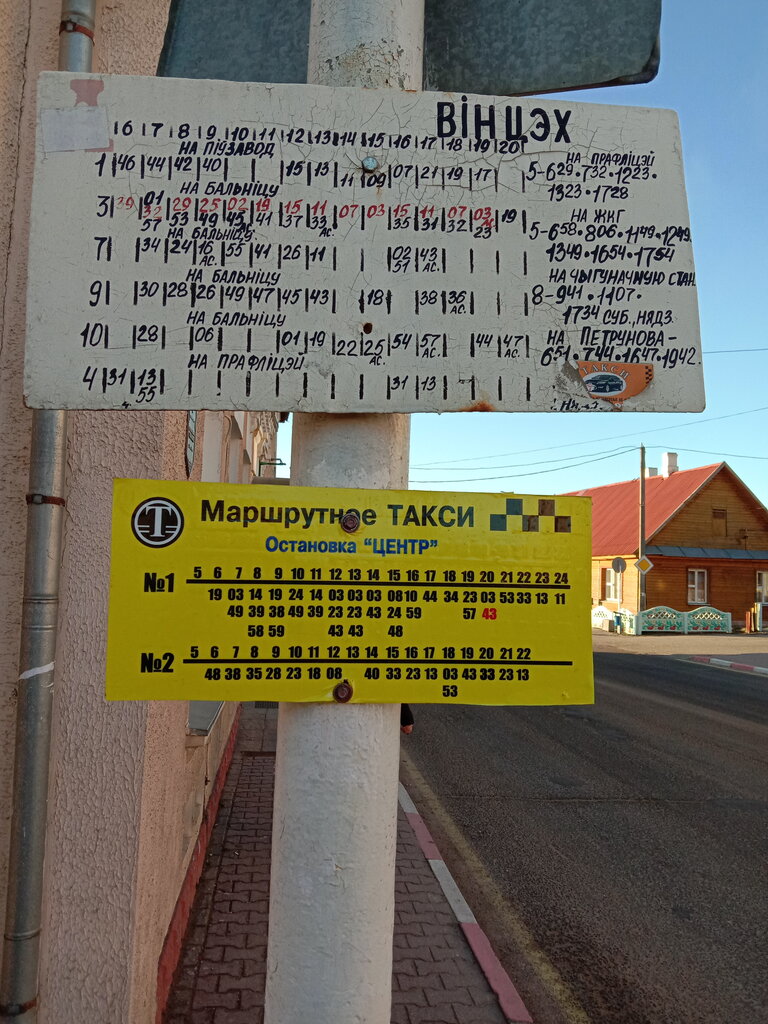 ВІНЦЭХ
16 17 18 19 110 111 112 113 114 115 116 117 118 119 120
НА ПІЎЗАВОД
1 46 44 42 40 15 13 11 09 07 21 19 17
НА БАЛЬНІЦУ
3 29 01 29 25 02 19 15 11 07 03 15 11 07 03 19
32 53 49 45 41 37 33 35 31 32
57 АС. АС. 23
НА БАЛЬНІЦУ
7 34 24 16 55 41 26 11 02 43
АС. 51 АС.
НА БАЛЬНІЦУ
9 30 28 26 49 47 45 43 18 38 36
АС.
НА БАЛЬНІЦУ
10 28 06 01 19 22 25 54 57 44 47
АС. АС. АС.
НА ПРАФЛІЦЭЙ
4 31 13 31 13
55
НА ПРАФЛІЦЭЙ
5-629·732·1223·
1323·1728
НА ЖКГ
5-658·806·1149·1249·
1349·1654·1754
НА ЧЫГУНАЧНУЮ СТАН.
8-941·1107·
1734 СУБ., НЯДЗ
НА ПЕТРУНОВА-
651·744·1647·1942.
ТАКСИ
Т Маршрутное ТАКСИ
Остановка "ЦЕНТР"
№1 5 6 7 8 9 10 11 12 13 14 15 16 17 18 19 20 21 22 23 24
19 03 14 19 24 14 03 03 03 08 10 44 34 23 03 53 33 13 11
49 39 38 49 39 23 23 43 24 59 57 43
58 59 43 43 48
№2 5 6 7 8 9 10 11 12 13 14 15 16 17 18 19 20 21 22
48 38 35 28 23 18 08 40 33 23 13 03 43 33 23 13
53